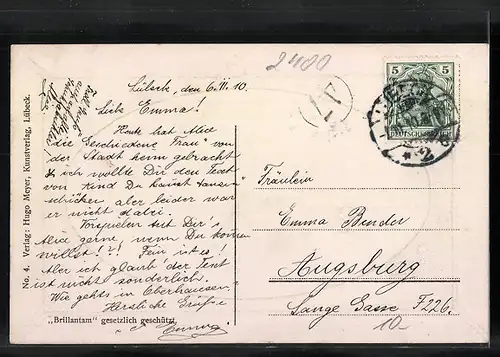 2400
Lübeck, den 6. III. 10.
Liebe Emma!
Heute hat Alice
die "Geschiedene Frau" von
der Stadt heim gebracht
& ich wollte Dir den Text
von "Kind Du kannst tanzen"
schicken aber leider war
er nicht dabei.
Vorspielen tut Dir's
Alice gern, wenn Du kommen
willst!!! Fein ist es!
Aber ich glaub' der Text
ist nicht sonderlich.
Wie gehts in Oberhausen
Herzliche Grüße
Emma
No 4. Verlag: Hugo Meyer, Kunstverlag, Lübeck.
„Brillantam" gesetzlich geschützt.
5 5
DEUTSCHES REICH
* 2
Fräulein
Emma Bender
Augsburg
Lange Gasse F 226.
10